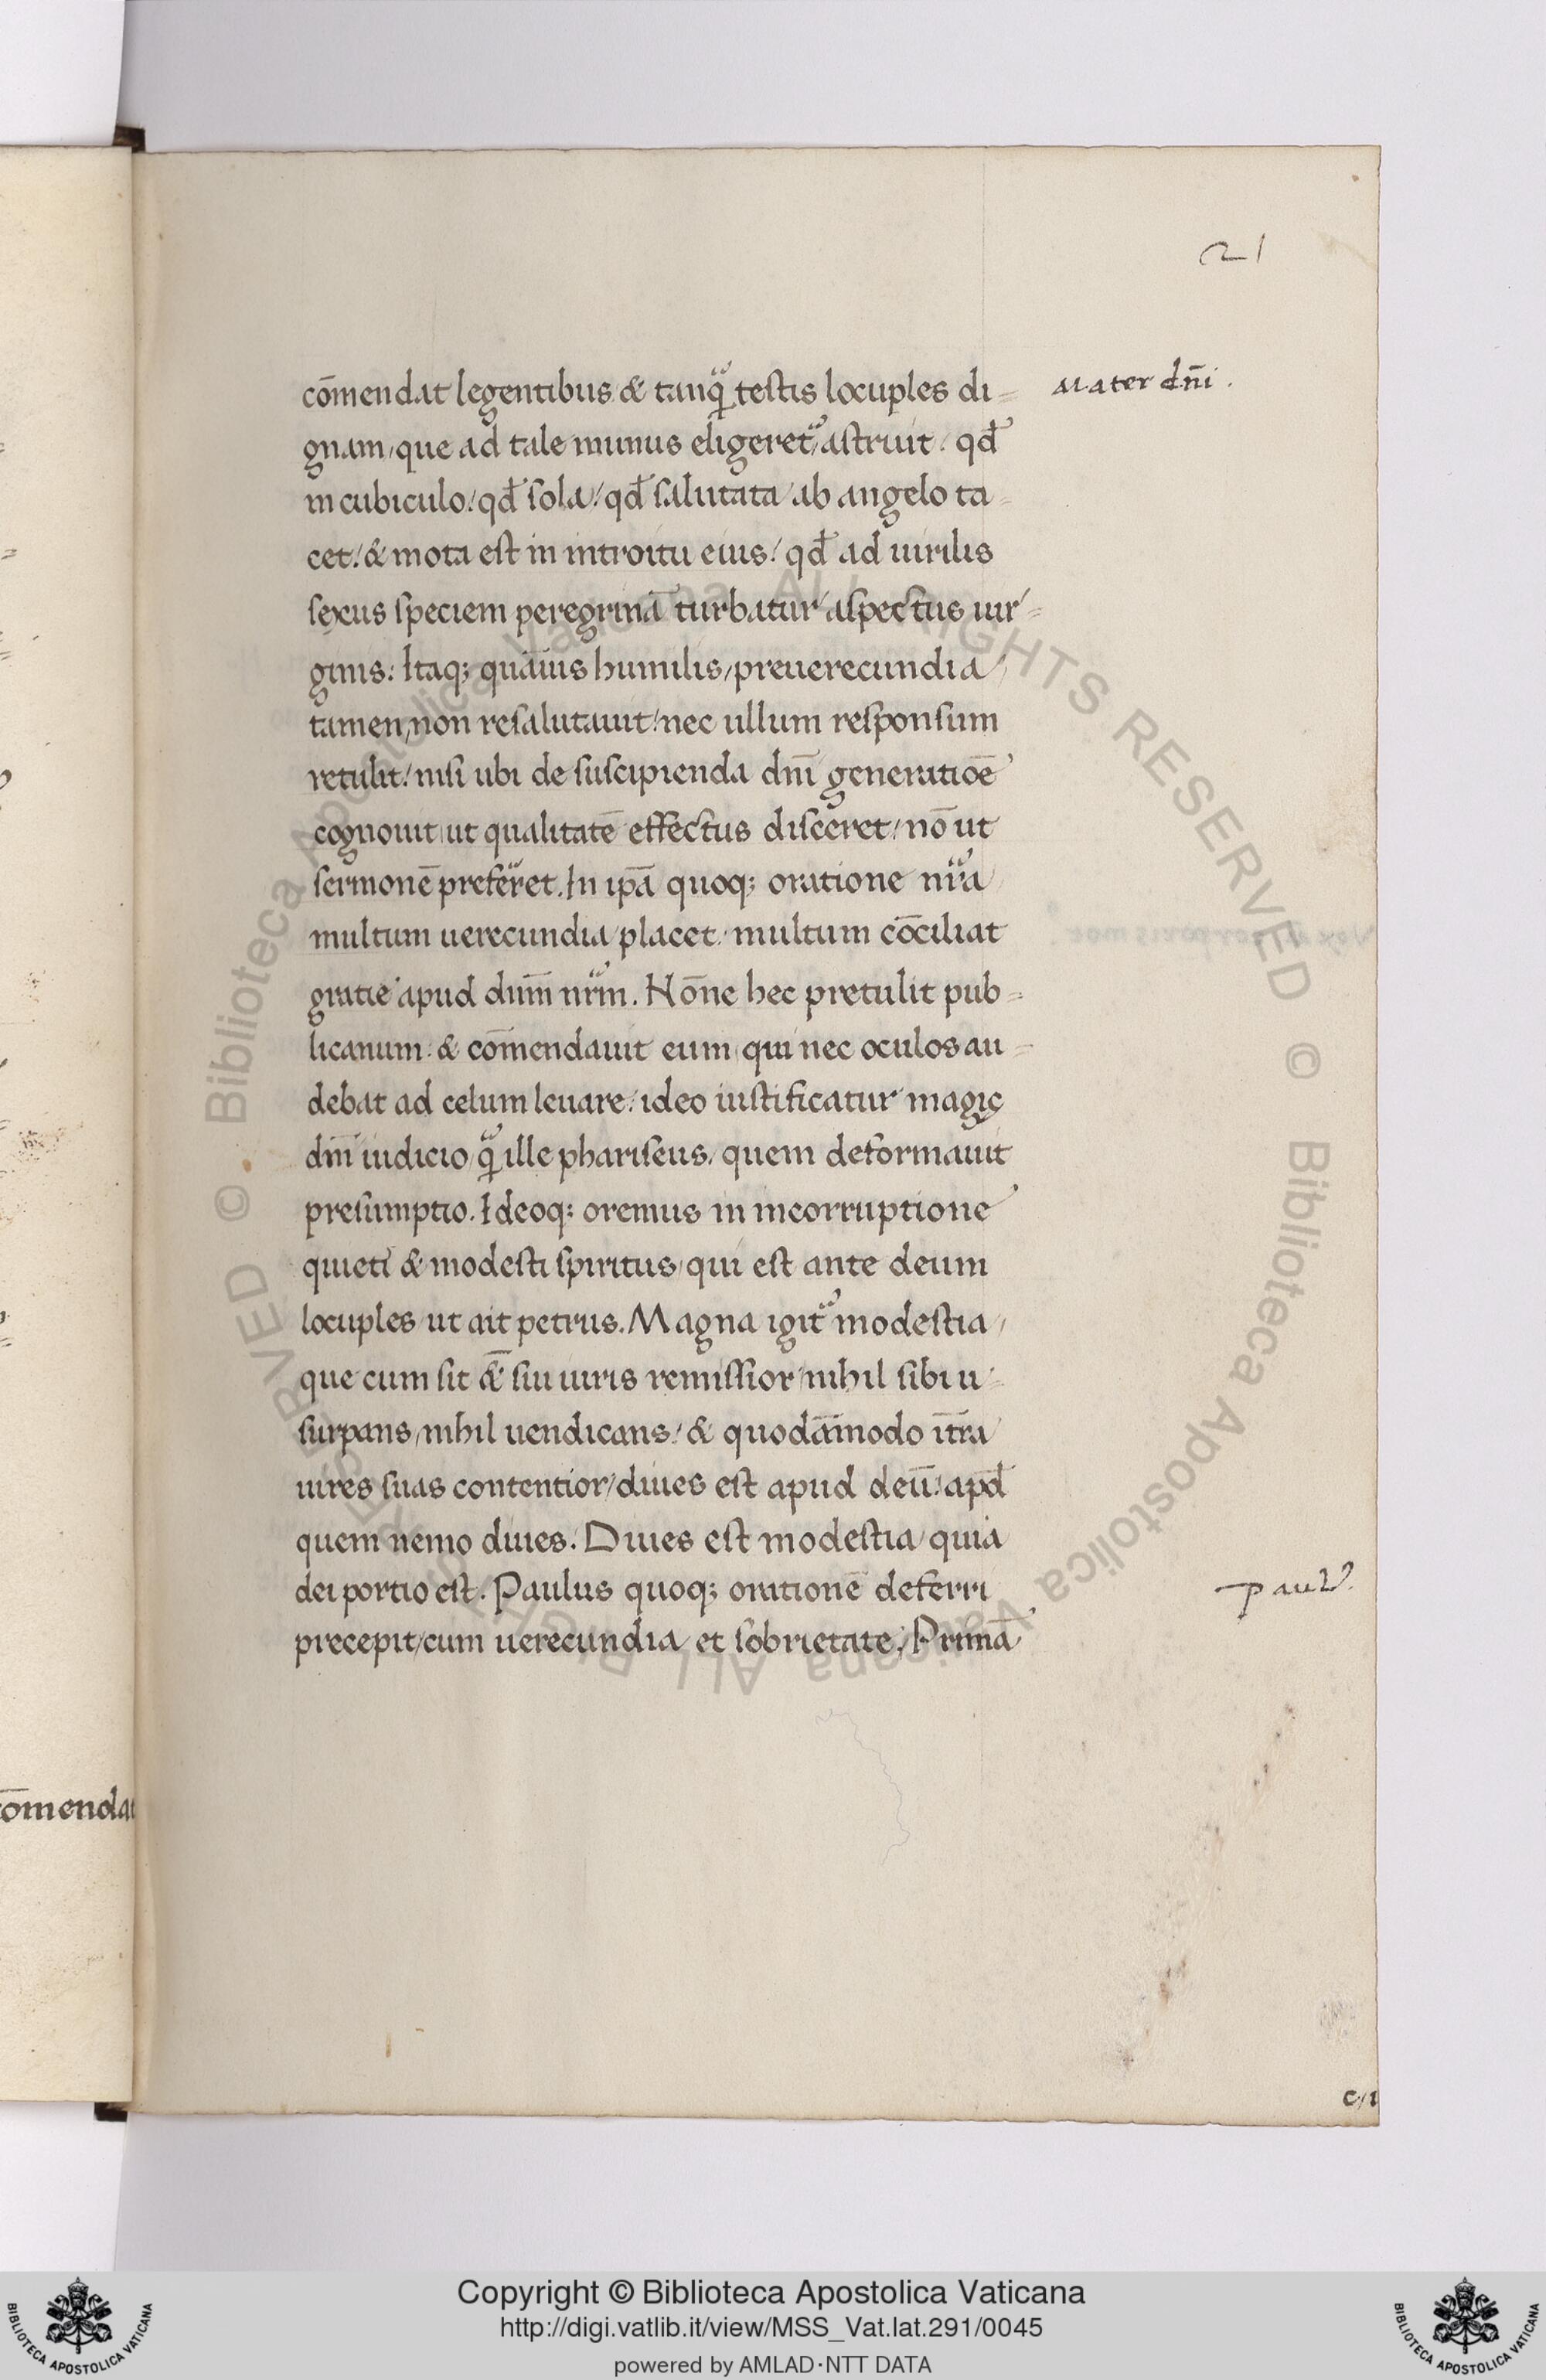 21
cōmendat legentibus & tanq̃ testis locuples di= mater dñi.
gnam, que ad tale munus eligeret᷒ astruit. qd̕
in cubiculo/ qd̕ sola/ qd̕ salutata ab angelo ta-
cet/ & mota est in introitu eius/ qd̕ ad uirilis
sexus speciem peregrinā turbatur aspectus uir=
ginis: Itaq; quāuis humilis, preuerecundia,
tamen, non resalutauit/ nec ullum responsum
retulit/ nisi ubi de suscipienda dn̄i generatiōe
cognouit, ut qualitatē effectus disceret/ nō ut
sermonē prefer̃et. In ip̄a quoq; oratione nr̃a
multum uerecundia placet, multum cōciliat
gratie apud dūm nr̃m. Nōne hec pretulit pub=
licanum, & cōmendauit eum, qui nec oculos au=
debat ad celum leuare/ ideo iustificatur magis
dn̄i iudicio, q̃ ille phariseus, quem deformauit
presumptio. Ideoq; oremus in incorruptione
quieti & modesti spiritus, qui est ante deum
locuples ut ait petrus. Magna igit᷒ modestia,
que cum sit &̄ sui iuris remissior, nihil sibi u-
surpans, nihil uendicans/ & quodāmodo īt̄ra
uires suas contentior, diues est apud deū/ apd̕
quem nemo diues. Diues est modestia, quia
dei portio est. Paulus quoq; orationē deferri paul᷒.
precepit, cum uerecundia, et sobrietate; Primā
cōmendat
c/1
Copyright © Biblioteca Apostolica Vaticana
http://digi.vatlib.it/view/MSS_Vat.lat.291/0045
powered by AMLAD·NTT DATA
BIBLIOTECA APOSTOLICA VATICANA
BIBLIOTECA APOSTOLICA VATICANA
© Biblioteca Apostolica Vaticana ALL RIGHTS RESERVED
© Biblioteca Apostolica Vaticana ALL RIGHTS RESERVED